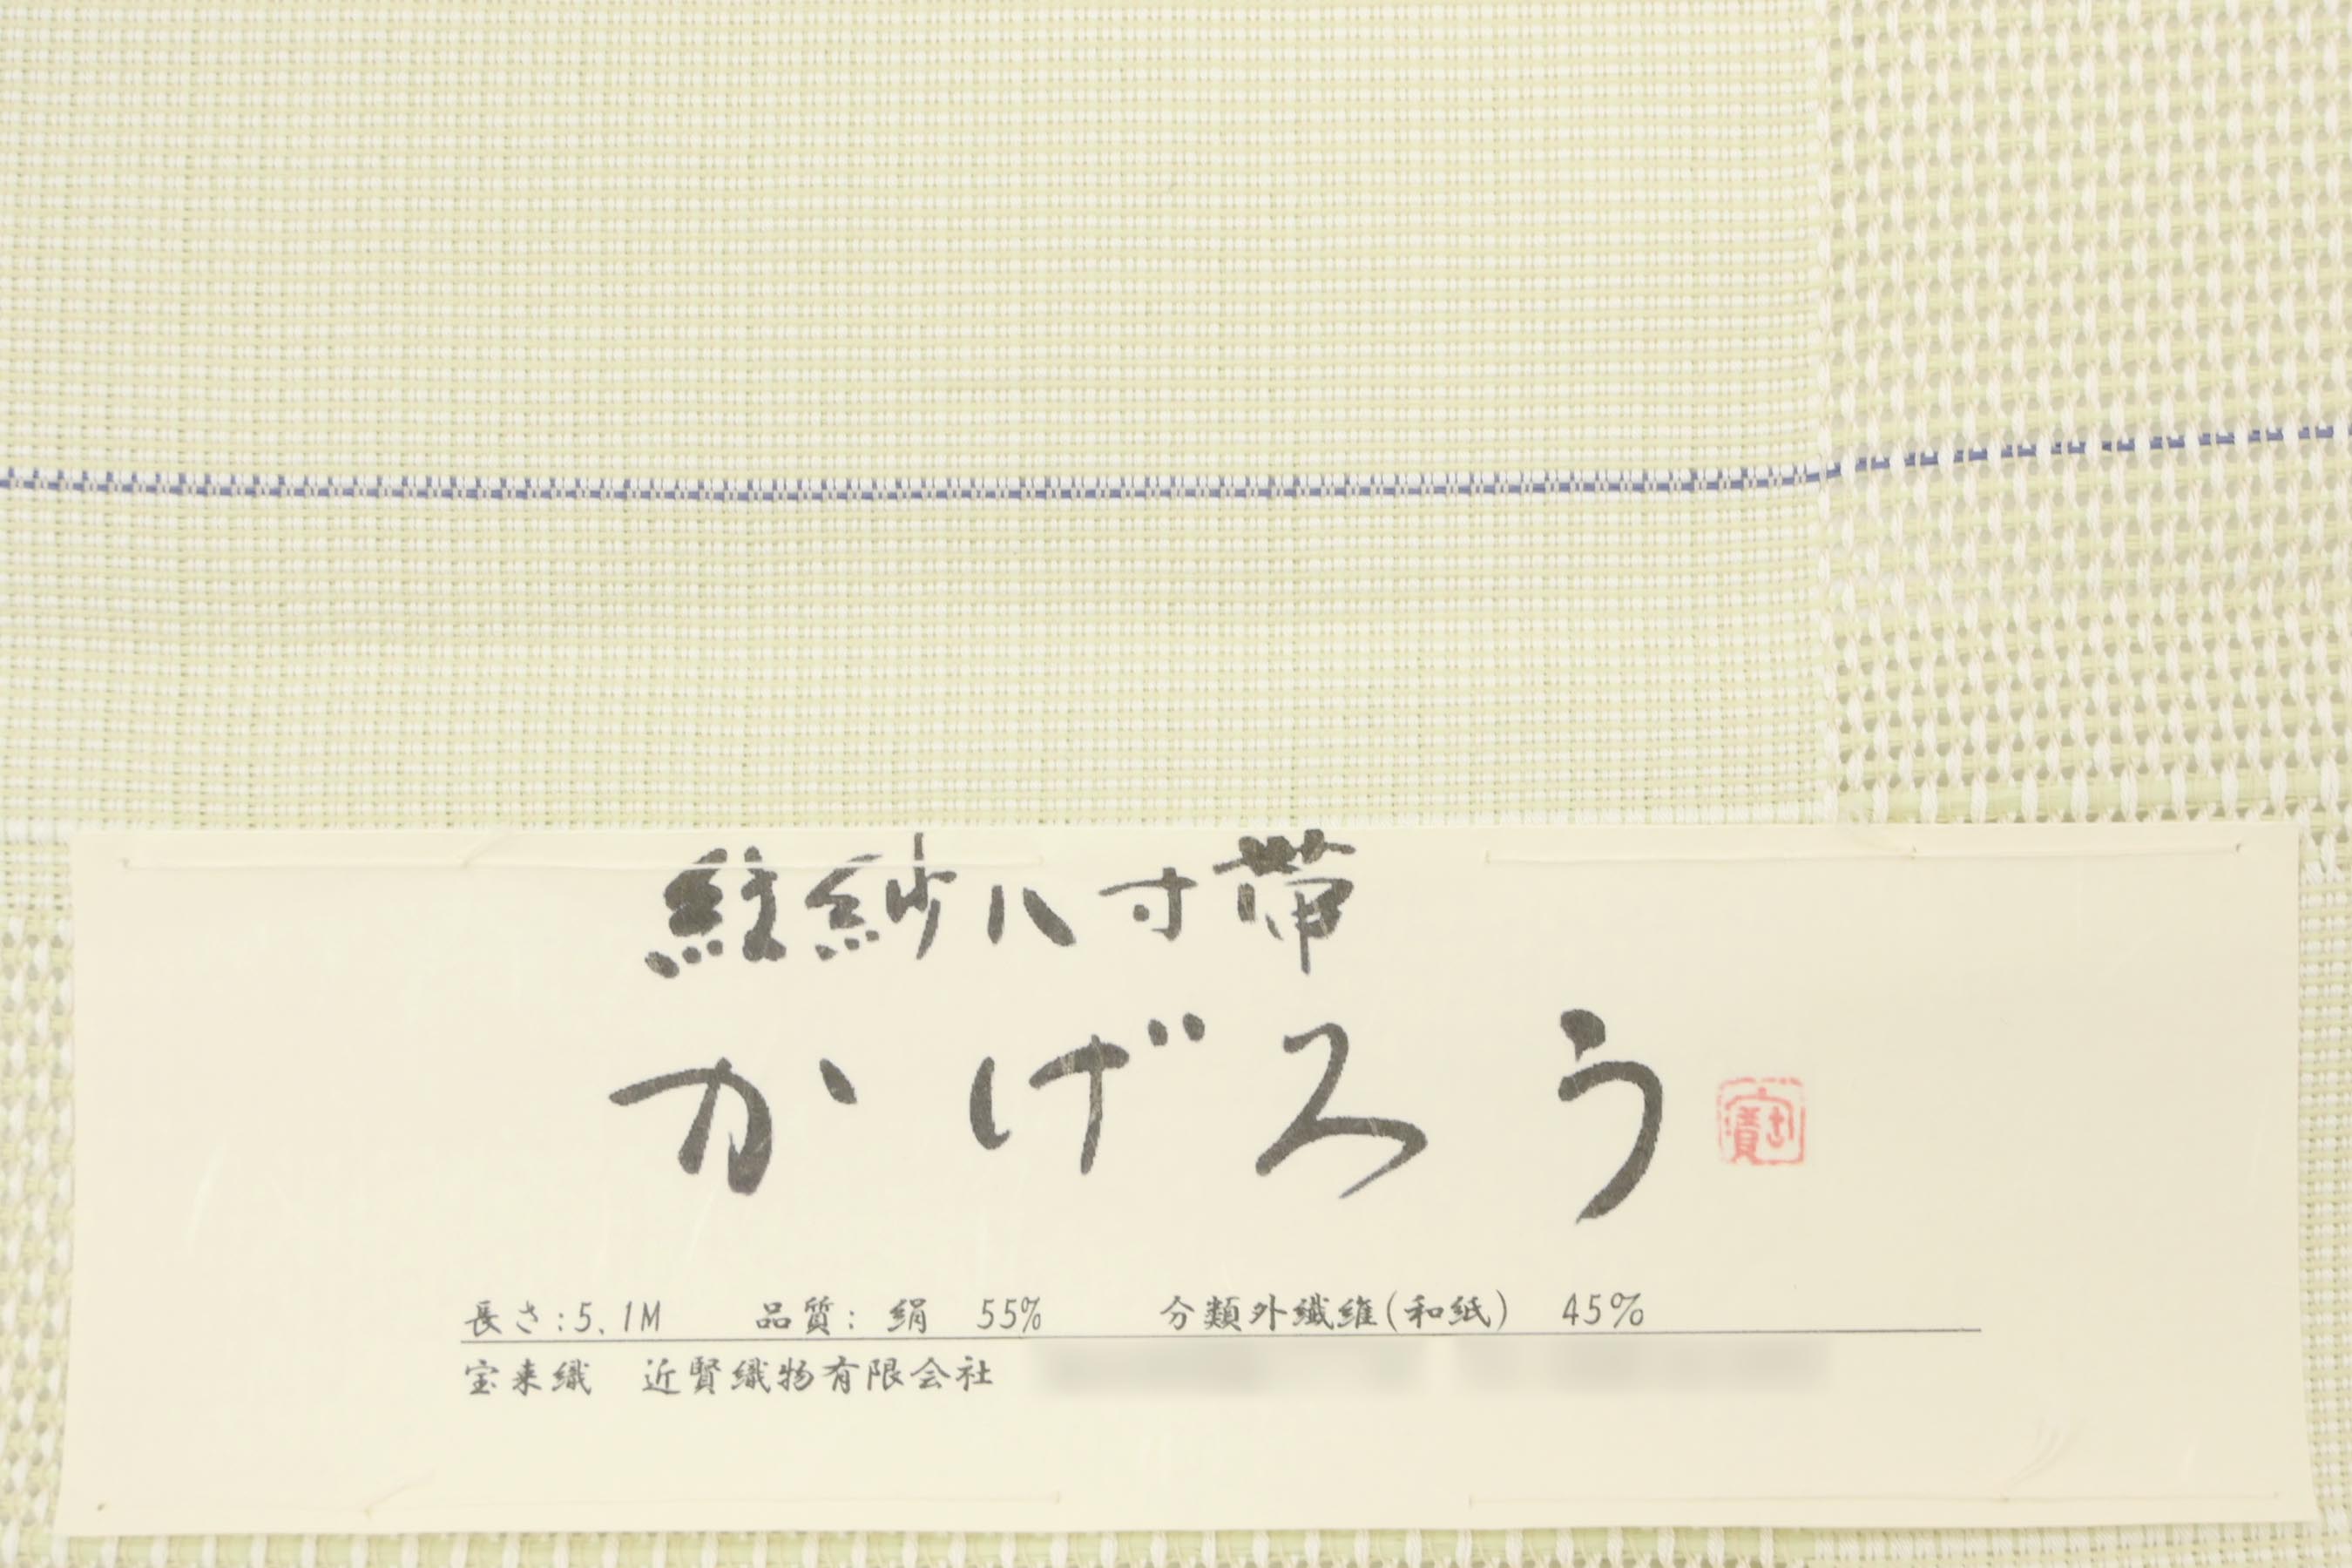 紋紗八寸帯
かげろう
長さ:5.1M 品質: 絹 55% 分類外繊維(和紙) 45%
宝来織 近賢織物有限会社